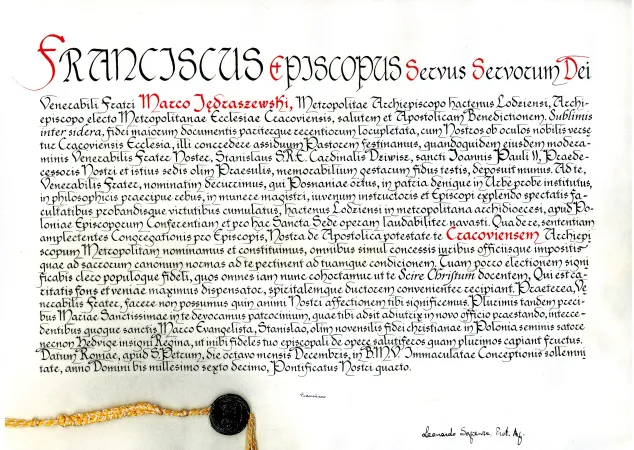 FRANCISCUS EPISCOPUS Servus Servorum Dei
Venerabili Fratri Marco Jędraszewski, Metropolitae Archiepiscopo hactenus Lodziensi, Archi-
episcopo electo Metropolitanae Ecclesiae Cracoviensis, salutem et Apostolicam Benedictionem. Sublimis
inter sidera, fidei maiorum documentis pariterque recentiorum locupletata, cum Nostros ob oculos nobilis verse
tur Cracoviensis Ecclesia, illi concredere assiduum Pastorem festinamus, quandoquidem eiusdem modera-
minis Venerabilis Frater Noster, Stanislaus S.R.E. Cardinalis Dziwisz, sancti Ioannis Pauli II, Praede-
cessoris Nostri et istius sedis olim Praesulis, memorabilium gestarum fidus testis, deposuit munus. Ad te,
Venerabilis Frater, nominatim decurrimus, qui Posnaniae ortus, in patria denique in Urbe probe institutus,
in philosophicis praecipue rebus, in munere magistri, iuvenum instructoris et Episcopi explendo spectatis fa-
cultatibus probandisque virtutibus cumulatus, hactenus Lodziensi in metropolitana archidioecesi, apud Po-
loniae Episcoporum Conferentiam et pro hac Sancta Sede operam laudabiliter navasti. Quadere, sententiam
amplectentes Congregationis pro Episcopis, Nostra de Apostolica potestate te Cracoviensem Archiepi
scopum Metropolitam nominamus et constituimus, omnibus simul concessis iuribus officiisque impositis
quae ad sacrorum canonum normas ad te pertinent ad tuamque condicionem. Tuam porro electionem signi
ficabis clero populoque fideli, quos omnes iam nunc cohortamur ut te Scire Christum docentem, Qui est ca-
ritatis fons et veniae maximus dispensator, spiritalemque ductorem convenienter recipiant. Praeterea, Ve-
nerabilis Frater, facere non possumus quin animi Nostri affectionem tibi significemus. Plurimis tandem preci-
bus Mariae Sanctissimae in te devocamus patrocinium, quae tibi adsit adiutrix in novo officio praestando, interce-
dentibus quoque sanctis Marco Evangelista, Stanislao, olim novensilis fidei christianae in Polonia seminis satore
necnon Hedvige insigni Regina, ut inibi fideles tuo episcopali de opere salutiferos quam plurimos capiant fructus.
Datum Romae, apud S. Petrum, die octavo mensis Decembris, in B.M.V. Immaculatae Conceptionis sollemni
tate, anno Domini bis millesimo sexto decimo, Pontificatus Nostri quarto.
Franciscus
Leonardo Sapienza, Prot. Ap.